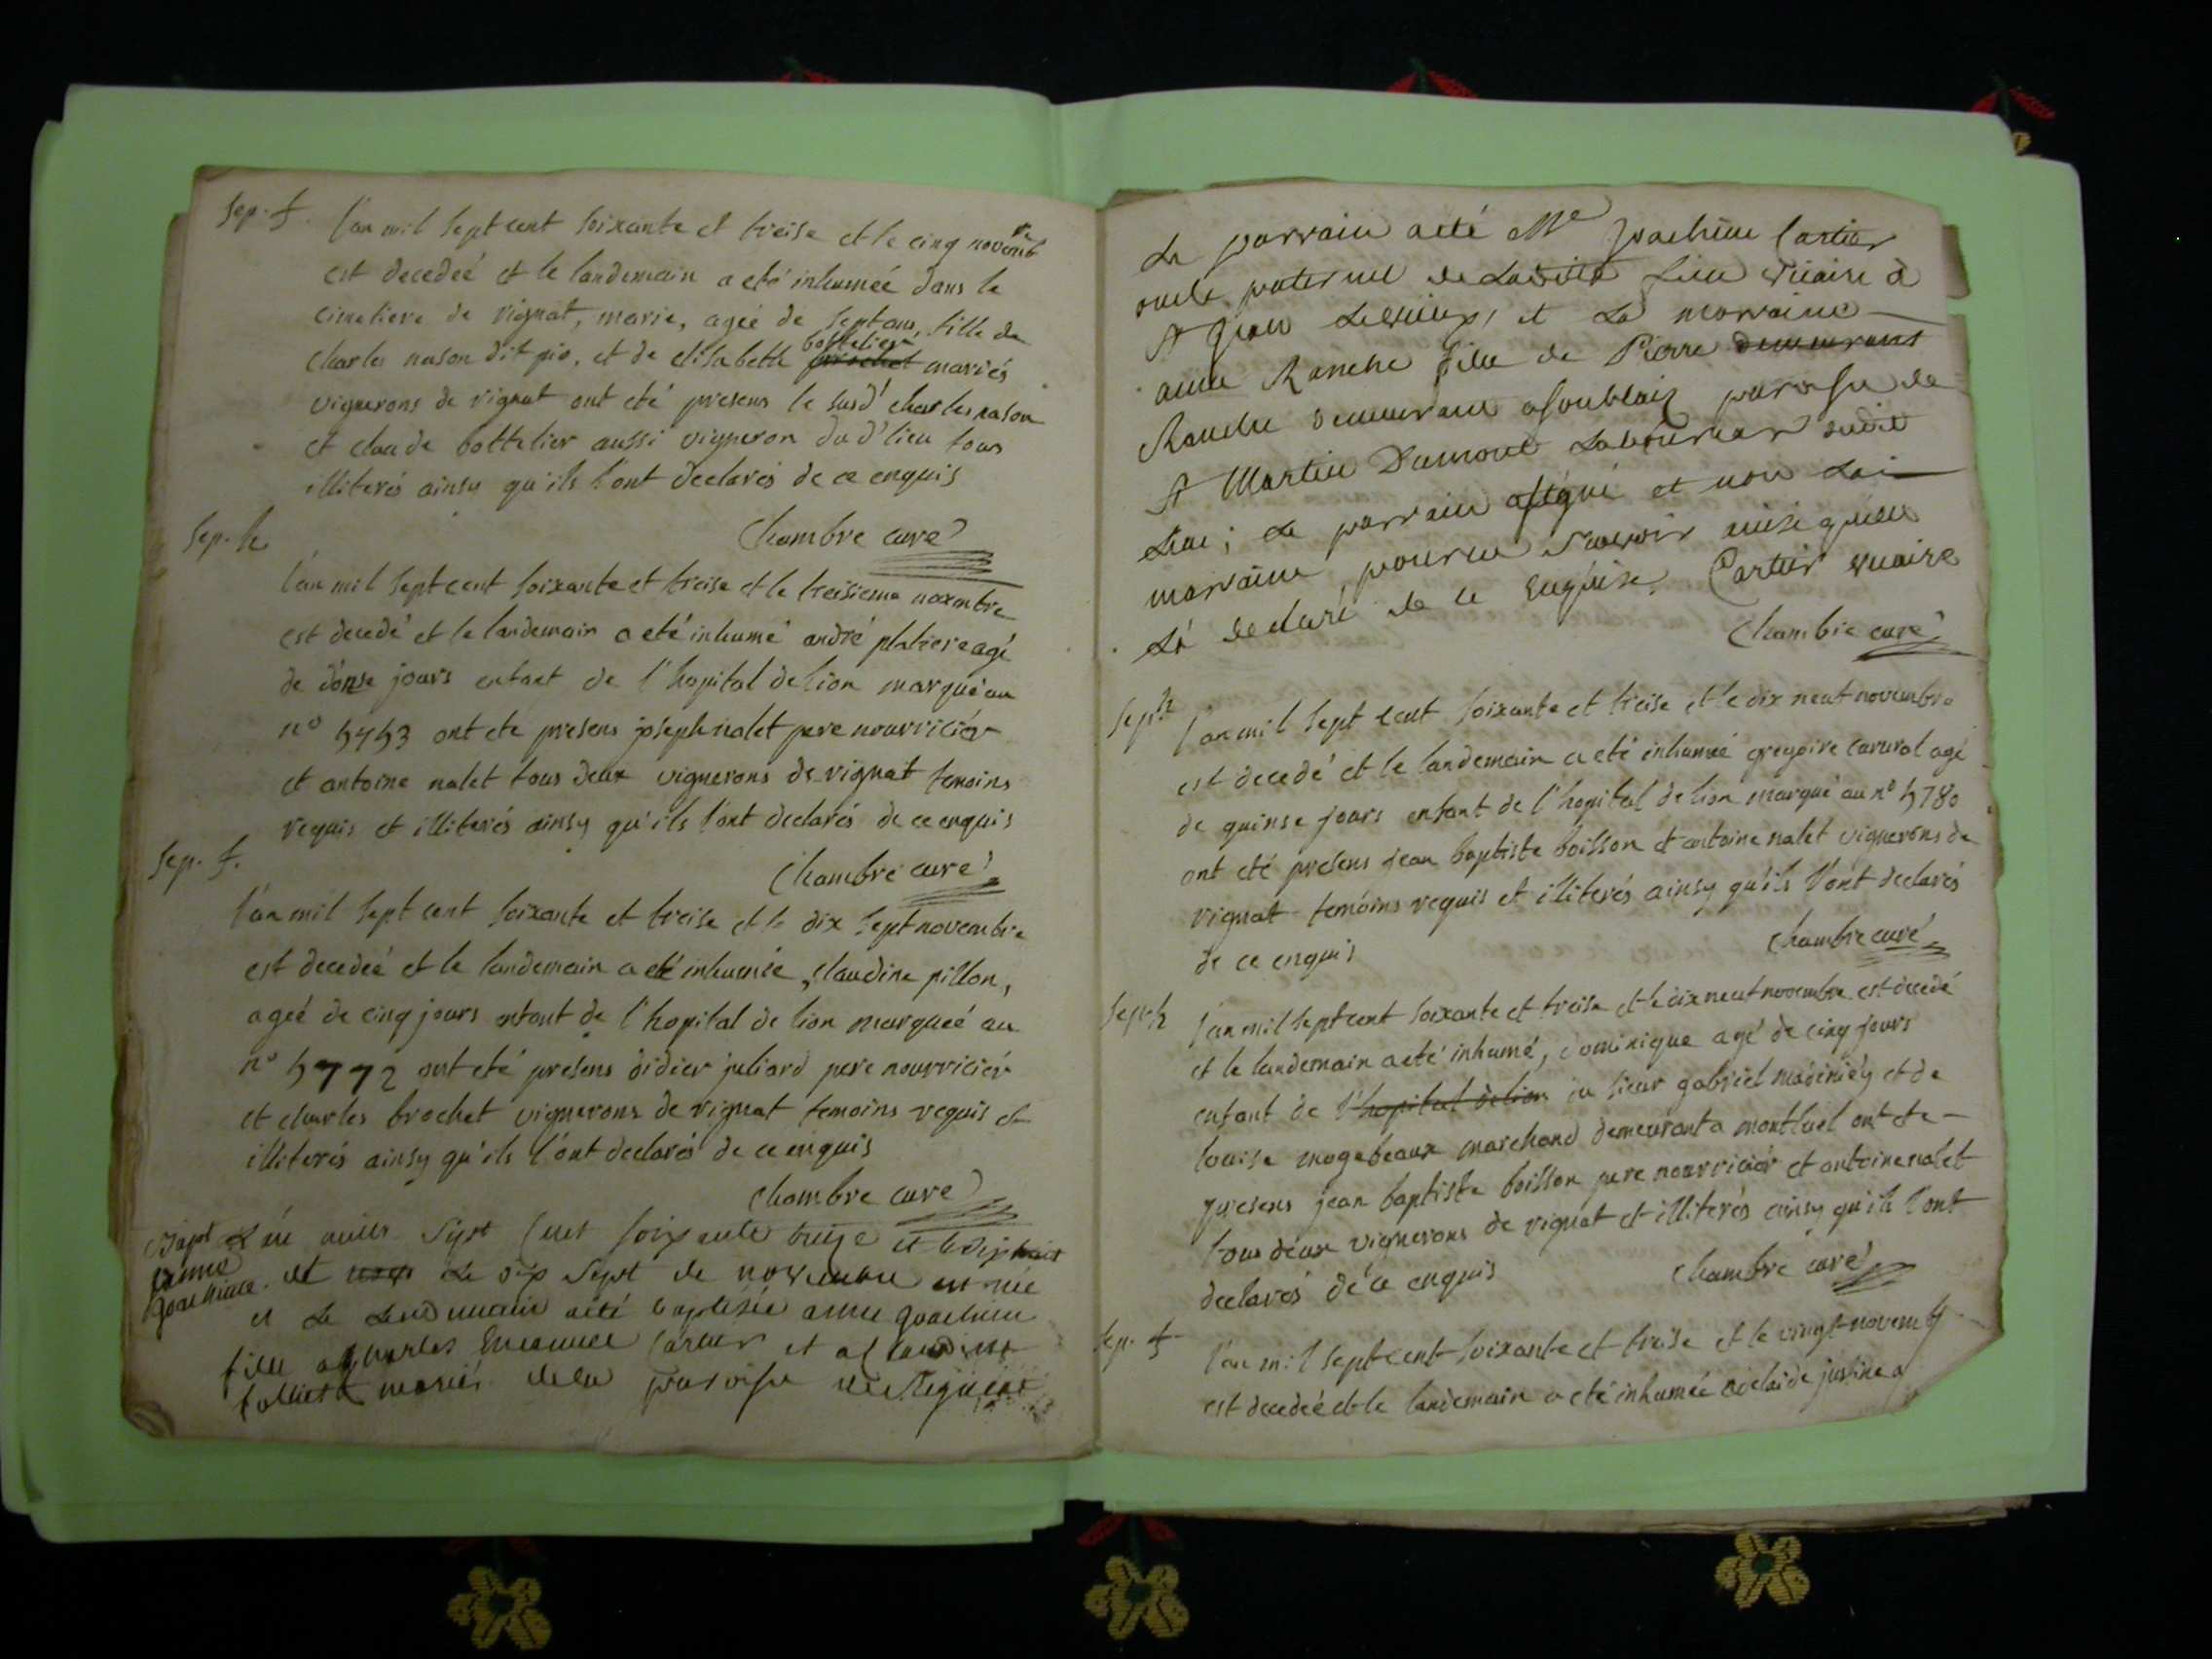 Sep. f. l'an mil sept cent soixante et treise et le cinq novembre
est decedeé et le landemain a eté inhumeé dans le
cimetiere de vignat, marie, ageé de sept ans, fille de
bottelier
charles nason dit pio, et de elisabeth brochet mariés
vignerons de vignat ont eté presens le susd' charles nason
et claude bottelier aussi vigneron dud' lieu tous
illiterés ainsy qu'ils l'ont declarés de ce enquis
Chambre curé
Sep. h.
l'an mil sept cent soixante et treise et le treisieme novembre
est decedé et le landemain a eté inhumé andré platiere agé
de donse jours enfant de l'hopital de lion marqué au
n° 5753 ont ete presens joseph nalet pere nourricier
et antoine nalet tous deux vignerons de vignat temoins
requis et illiterés ainsy qu'ils l'ont declarés de ce enquis
Chambre curé
Sep. f.
l'an mil sept cent soixante et treise et le dix sept novembre
est decedeé et le landemain a eté inhumée, claudine pillon,
ageé de cinq jours enfant de l'hopital de lion marqueé au
n° 5772 ont eté presens didier juliard pere nourricier
et charles brochet vignerons de vignat temoins requis et
illiterés ainsy qu'ils l'ont declarés de ce enquis
Chambre curé
Bapt L'an mille sept cent soixante treize et le dix huit
anne
joachime. et le dix sept de novembre est née
et le lendemain a été baptisée anne joachime
fille a charles Emanuel Cartier et a Claudine
mariés de la paroisse de
Le parrain a eté Me Joachim Cartier
oncle paternel de vicaire à
St Jean et la marraine
anne Ranche fille de Pierre demeurant
Ranche demeurant paroisse de
St Martin Dumont Laboureur dudit
lieu; le parrain a signé et non la
marraine, pour ne sçavoir ainsi qu'elle
la declaré de ce enquise, Cartier vicaire
Chambre curé
Sep. h
l'an mil sept cent soixante et treise et le dix neuf novembre
est decedé et le landemain a eté inhumé gregoire agé
de quinse jours enfant de l'hopital de lion marqué au n° 5780
ont eté presens jean baptiste boisson et antoine nalet vignerons de
vignat temoins requis et illiterés ainsy qu'ils l'ont declarés
de ce enquis
Chambre curé
Sep. h
l'an mil sept cent soixante et treise et le dix neuf novembre est decedé
et le landemain a eté inhumé, dominique agé de cinq jours
enfant de l'hopital de lion du sieur gabriel et de
louise marchand demeurant a montluel ont ete
presens jean baptiste boisson pere nourricier et antoine nalet
tous deux vignerons de vignat et illiterés ainsy qu'ils l'ont
declarés de ce enquis
Chambre curé
Sep. f
l'an mil sept cent soixante et treise et le vingt novemb
est decedeé et le landemain a eté inhumeé adelaide justine a